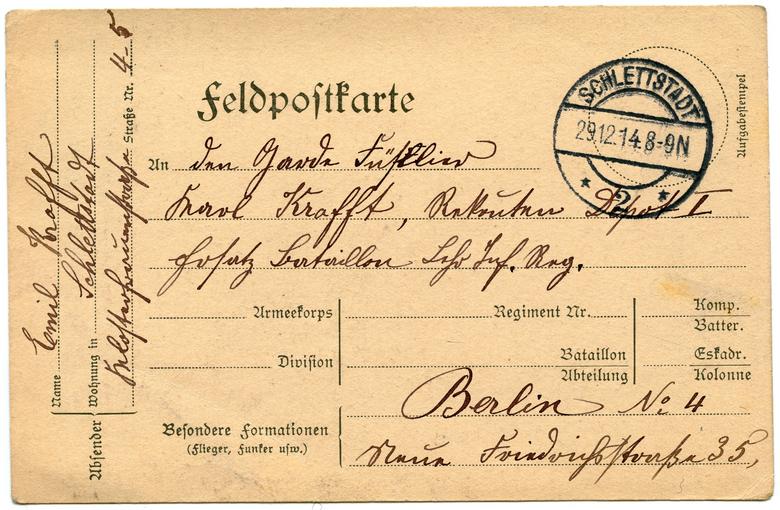 Feldpostkarte
SCHLETTSTADT
29.12.14.8-9N
* 2 *
Aufgabestempel
An den Garde Füsilier
Karl Krafft, Rekruten Depot I
Ersatz Bataillon Lehr Inf. Reg.
Armeekorps Regiment Nr. Komp.
Batter.
Division Bataillon Eskadr.
Abteilung Kolonne
Berlin No 4
Besondere Formationen
(Flieger, Funker usw.)
Neue Friedrichstraße 35,
Absender
Name Emil Krafft
Wohnung in Schlettstadt
Straße Nr. 4-5